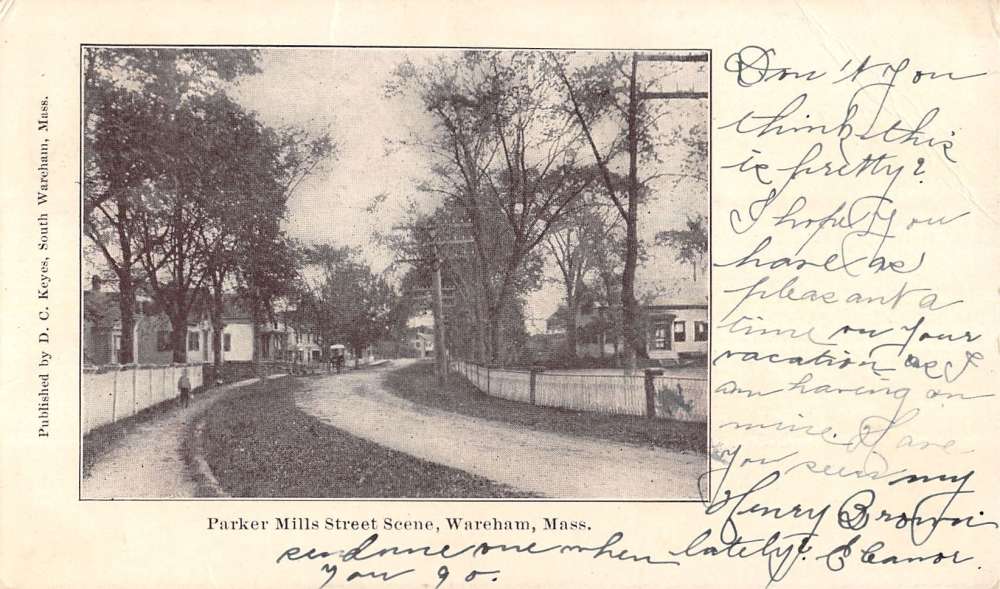 Published by D. C. Keyes, South Wareham, Mass.
Don't You
think this
is pretty?
I hope You
have as
pleasant a
time on Your
vacation as I
am having on
mine. Have
You seen my
Henry Brown
lately? Eleanor.
Parker Mills Street Scene, Wareham, Mass.
send me one when
You go.